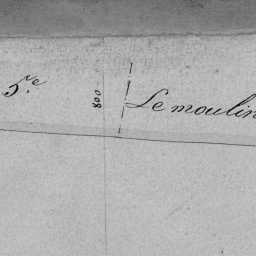 5.e
800
Le moulin